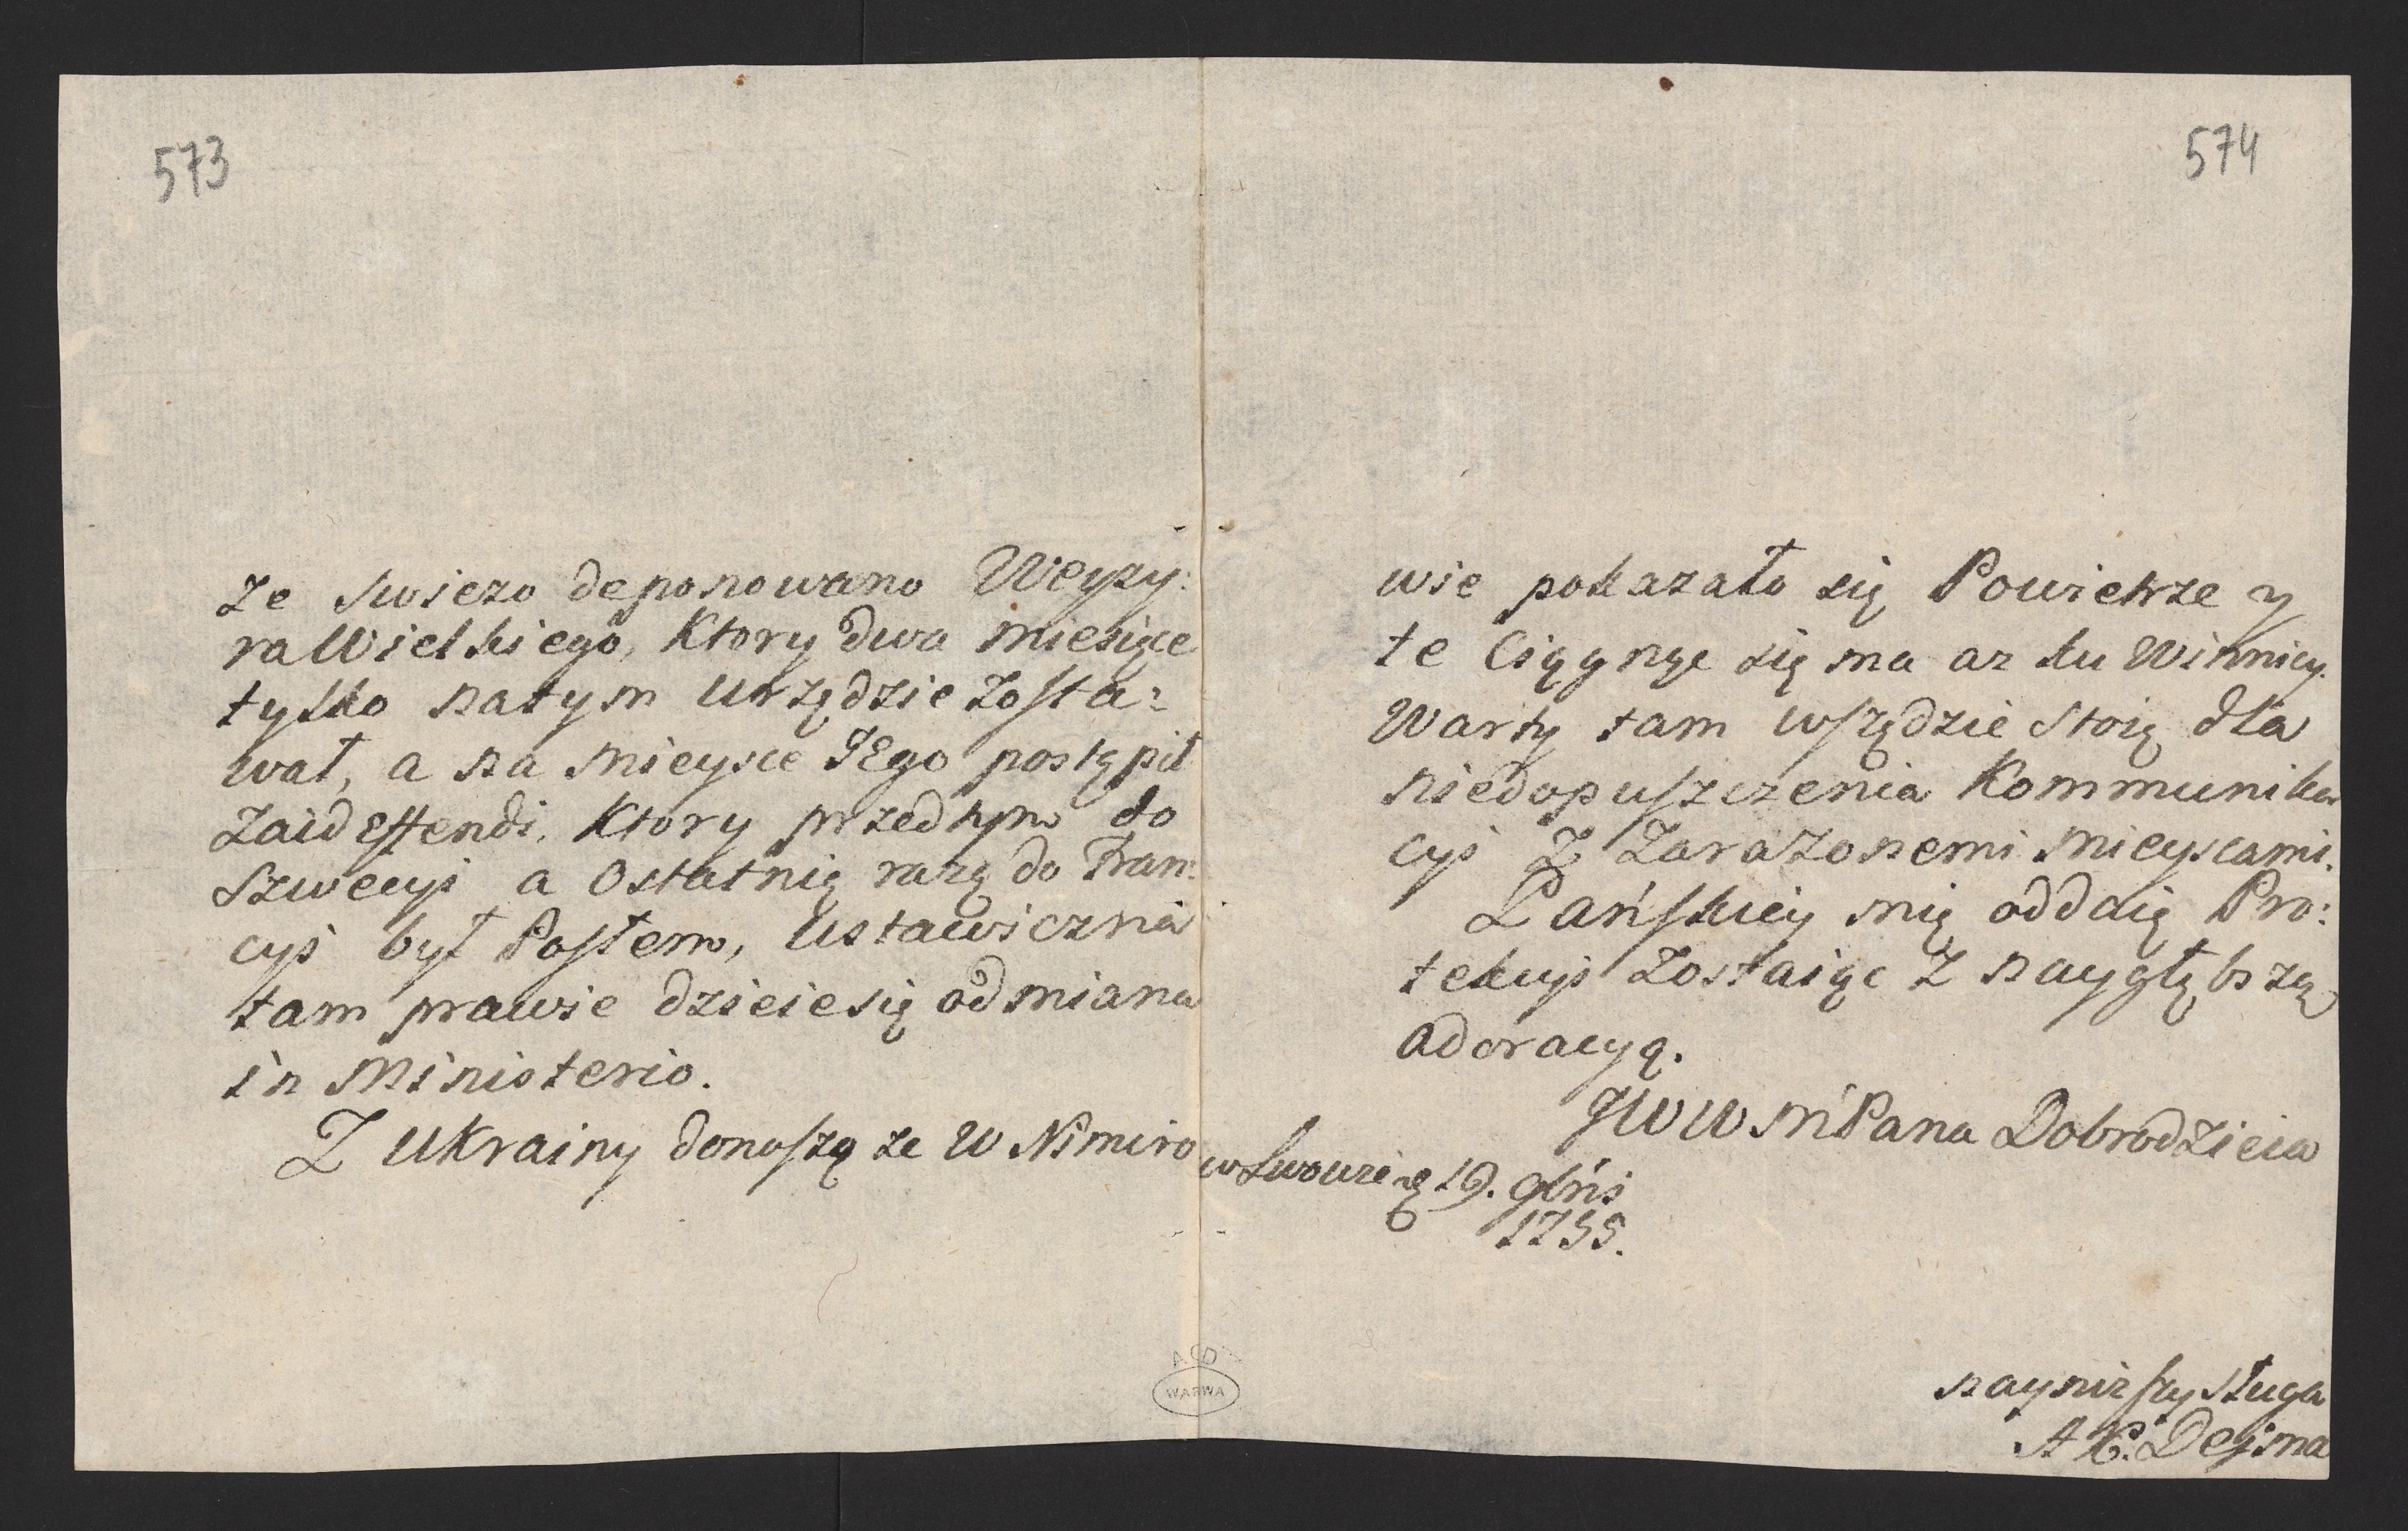 573
ze swiezo deponowano Wezy:
ra Wielkiego, Ktory dwa miesiące
tylko natym Urzędzie zosta:
wał, a na mieysce JEgo postąpił
Zaid Effendi, Ktory przedtym do
Szwecyi a Ostatnią razą do Fran:
cyi był Posłem, Ustawiczna
tam prawie dzieie się odmiana
in Ministerio.
Z Ukrainy donoszą ze W Nimiro
574
wie pokazało się Powietrze y
te Ciągnąc się ma az ku Winnicy.
Warty tam wszędzie stoią dla
niedopuszczenia Kommunika
cyi Z Zarazonemi mieyscami.
Pańskiey mię oddaię Pro:
tekcyi Zostaiąc Z naygłębszą
adoracyą.
JWWMPana Dobrodzieia
w Lwowie 19. 9bris
1755.
naynizszy sługa
A K. Dejma
ACD
WARWA